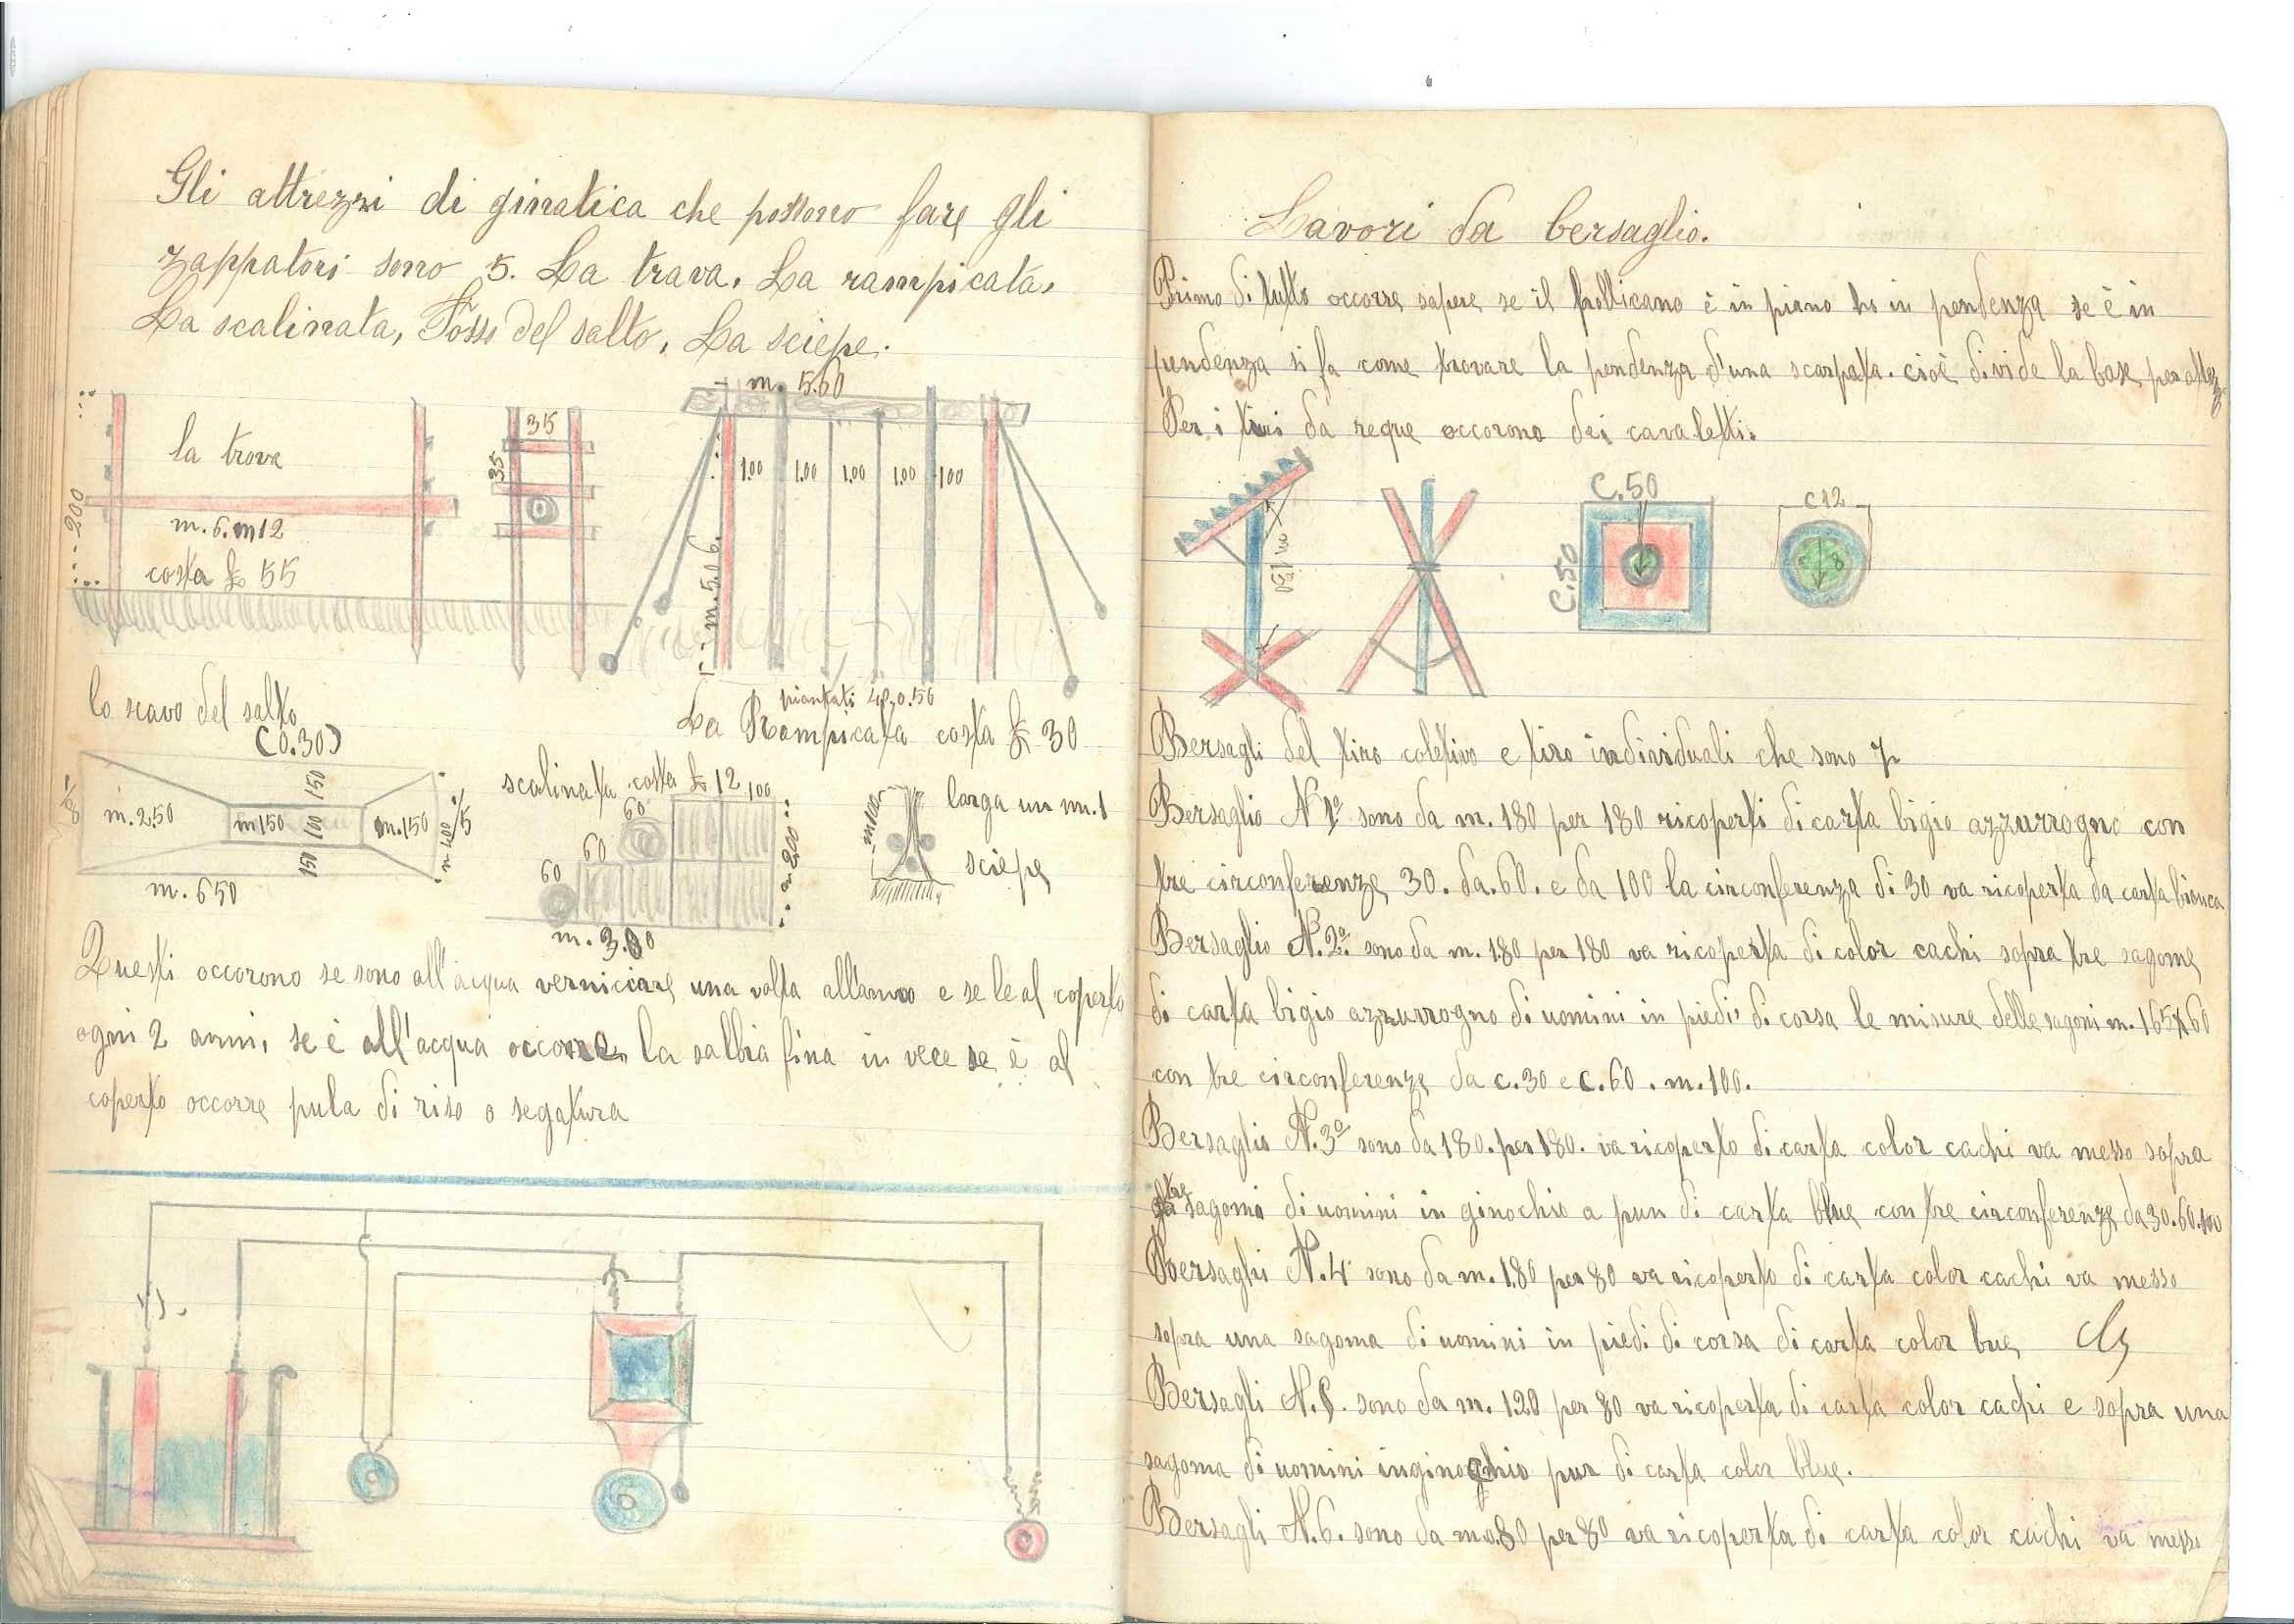 Gli attrezzi di ginatica che possono fare gli
zappatori sono 5. La trava. La rampicata,
La scalinata, Fosso del salto, La sciepe.
la trove
m. 6. m 12
costa £ 55
200
35
35
m. 5.60
1.00 1.00 1.00 1.00 100
m. 5.06.
piantati
La Rampicata costa £ 30
lo scavo del salto
(0.30)
m. 2.50
m 150
150
100
150
m. 150
m 400
m. 650
scalinata costa £ 12
100
60
60
60
m. 200
m. 3.00
m 100
larga un m. 1
sciepe
Questi occorono se sono all'acqua verniciare una volta all'anno e se le al coperto
ogni 2 anni, se è all'acqua occorre la sabbia fina in vece se è al
coperto occorre pula di riso o segatura
Lavori da bersaglio.
Primo di tutto occorre sapere se il è in piano ho in pendenza se è in
pendenza si fa come trovare la pendenza d'una scarpata. cioè divide la base per
Per i tiri da occorono dei cavaletti.
m 1.50
C. 50
C. 50
C 12
Bersagli del tiro coletivo e tiro individuali che sono 7
Bersaglio N 1º sono da m. 180 per 180 ricoperti di carta bigio azzurrogno con
tre circonferenze 30. da. 60. e da 100 la circonferenza di 30 va ricoperta da carta bianca
Bersaglio N. 2º. sono da m. 180 per 180 va ricoperta di color cachi sopra tre sagome
di carta bigio azzurrogno di uomini in piedi di corsa le misure delle sagoni m. 165x60
con tre circonferenze da c. 30 e c. 60. m. 100.
Bersaglio N. 3º sono da 180. per 180. va ricoperto di carta color cachi va messo sopra
tre sagoma di uomini in ginochio a pun di carta blue con tre circonferenze da 30. 60. 100
Bersaglii N. 4 sono da m. 180 per 80 va ricoperto di carta color cachi va messo
sopra una sagoma di uomini in piedi di corsa di carta color bue
Bersagli N. 5. sono da m. 120 per 80 va ricoperta di carta color cachi e sopra una
sagoma di uomini inginochio pur di carta color blue.
Bersagli N. 6. sono da m. 0.80 per 80 va ricoperta di carta color cachi va messo